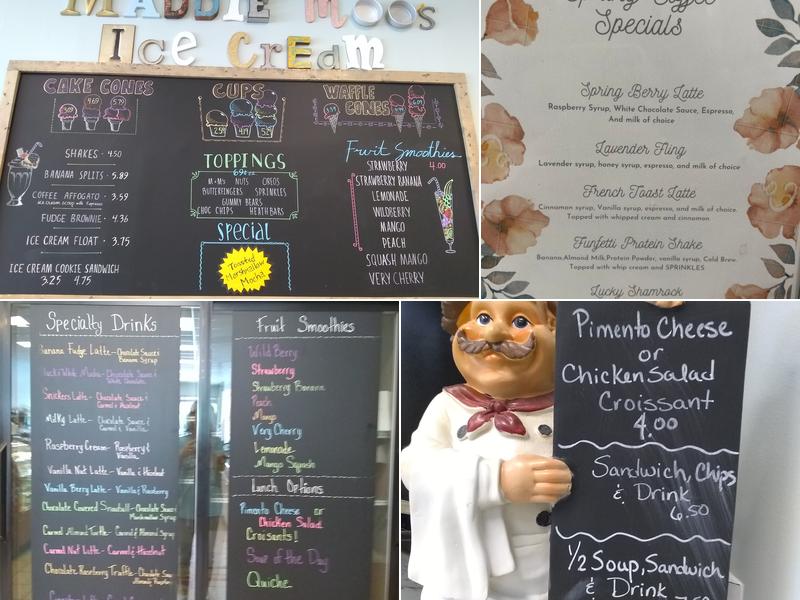 MADDIE MOOS
ICE CREAM
CAKE CONES
3.09 4.69 5.79
SHAKES · 4.50
BANANA SPLITS · 5.89
COFFEE AFFOGATO · 3.59
FUDGE BROWNIE · 4.36
ICE CREAM FLOAT · 3.75
ICE CREAM COOKIE SANDWICH
3.25 4.75
CUPS
2.59 4.19
TOPPINGS
69¢ EA
M·M'S NUTS OREOS
BUTTERFINGERS SPRINKLES
GUMMY BEARS
CHOC CHIPS HEATH BARS
Special
Toasted
Marshmallow
Mocha
WAFFLE
CONES
Fruit Smoothies
STRAWBERRY 4.00
STRAWBERRY BANANA
LEMONADE
WILDBERRY
MANGO
PEACH
SQUASH MANGO
VERY CHERRY
Spring Coffee
Specials
Spring Berry Latte
Raspberry Syrup, White Chocolate Sauce, Espresso,
And milk of choice
Lavender Fling
Lavender syrup, honey syrup, espresso, and milk of choice
French Toast Latte
Cinnamon syrup, Vanilla syrup, espresso, and milk of choice.
Topped with whipped cream and cinnamon
Funfetti Protein Shake
Banana,Almond Milk,Protein Powder, vanilla syrup, Cold Brew.
Topped with whip cream and SPRINKLES
Lucky Shamrock
Specialty Drinks
Banana Fudge Latte - Chocolate Sauce &
Banana Syrup
White Mocha - Chocolate Sauce &
White Chocolate
Snickers Latte - Chocolate Sauce &
Caramel & Hazelnut
Milky Latte - Chocolate Sauce &
Caramel & Vanilla
Raspberry Cream - Raspberry &
Vanilla
Vanilla Nut Latte - Vanilla & Hazelnut
Vanilla Berry Latte - Vanilla & Raspberry
Chocolate Covered Snowball - Chocolate Sauce &
Marshmallow Syrup
Carmel Almond Turtle - Carmel & Almond Syrup
Carmel Nut Latte - Carmel & Hazelnut
Chocolate Raspberry Truffle - Chocolate Sauce
Fruit Smoothies
Wild Berry
Strawberry
Strawberry Banana
Peach
Mango
Very Cherry
Lemonade
Mango Squash
Lunch Options
Pimento Cheese or
Chicken Salad
Croisants!
Soup of the Day
Quiche
Pimento Cheese
or
Chicken Salad
Croissant
4.00
Sandwich, Chips
& Drink
6.50
1/2 Soup, Sandwich
& Drink